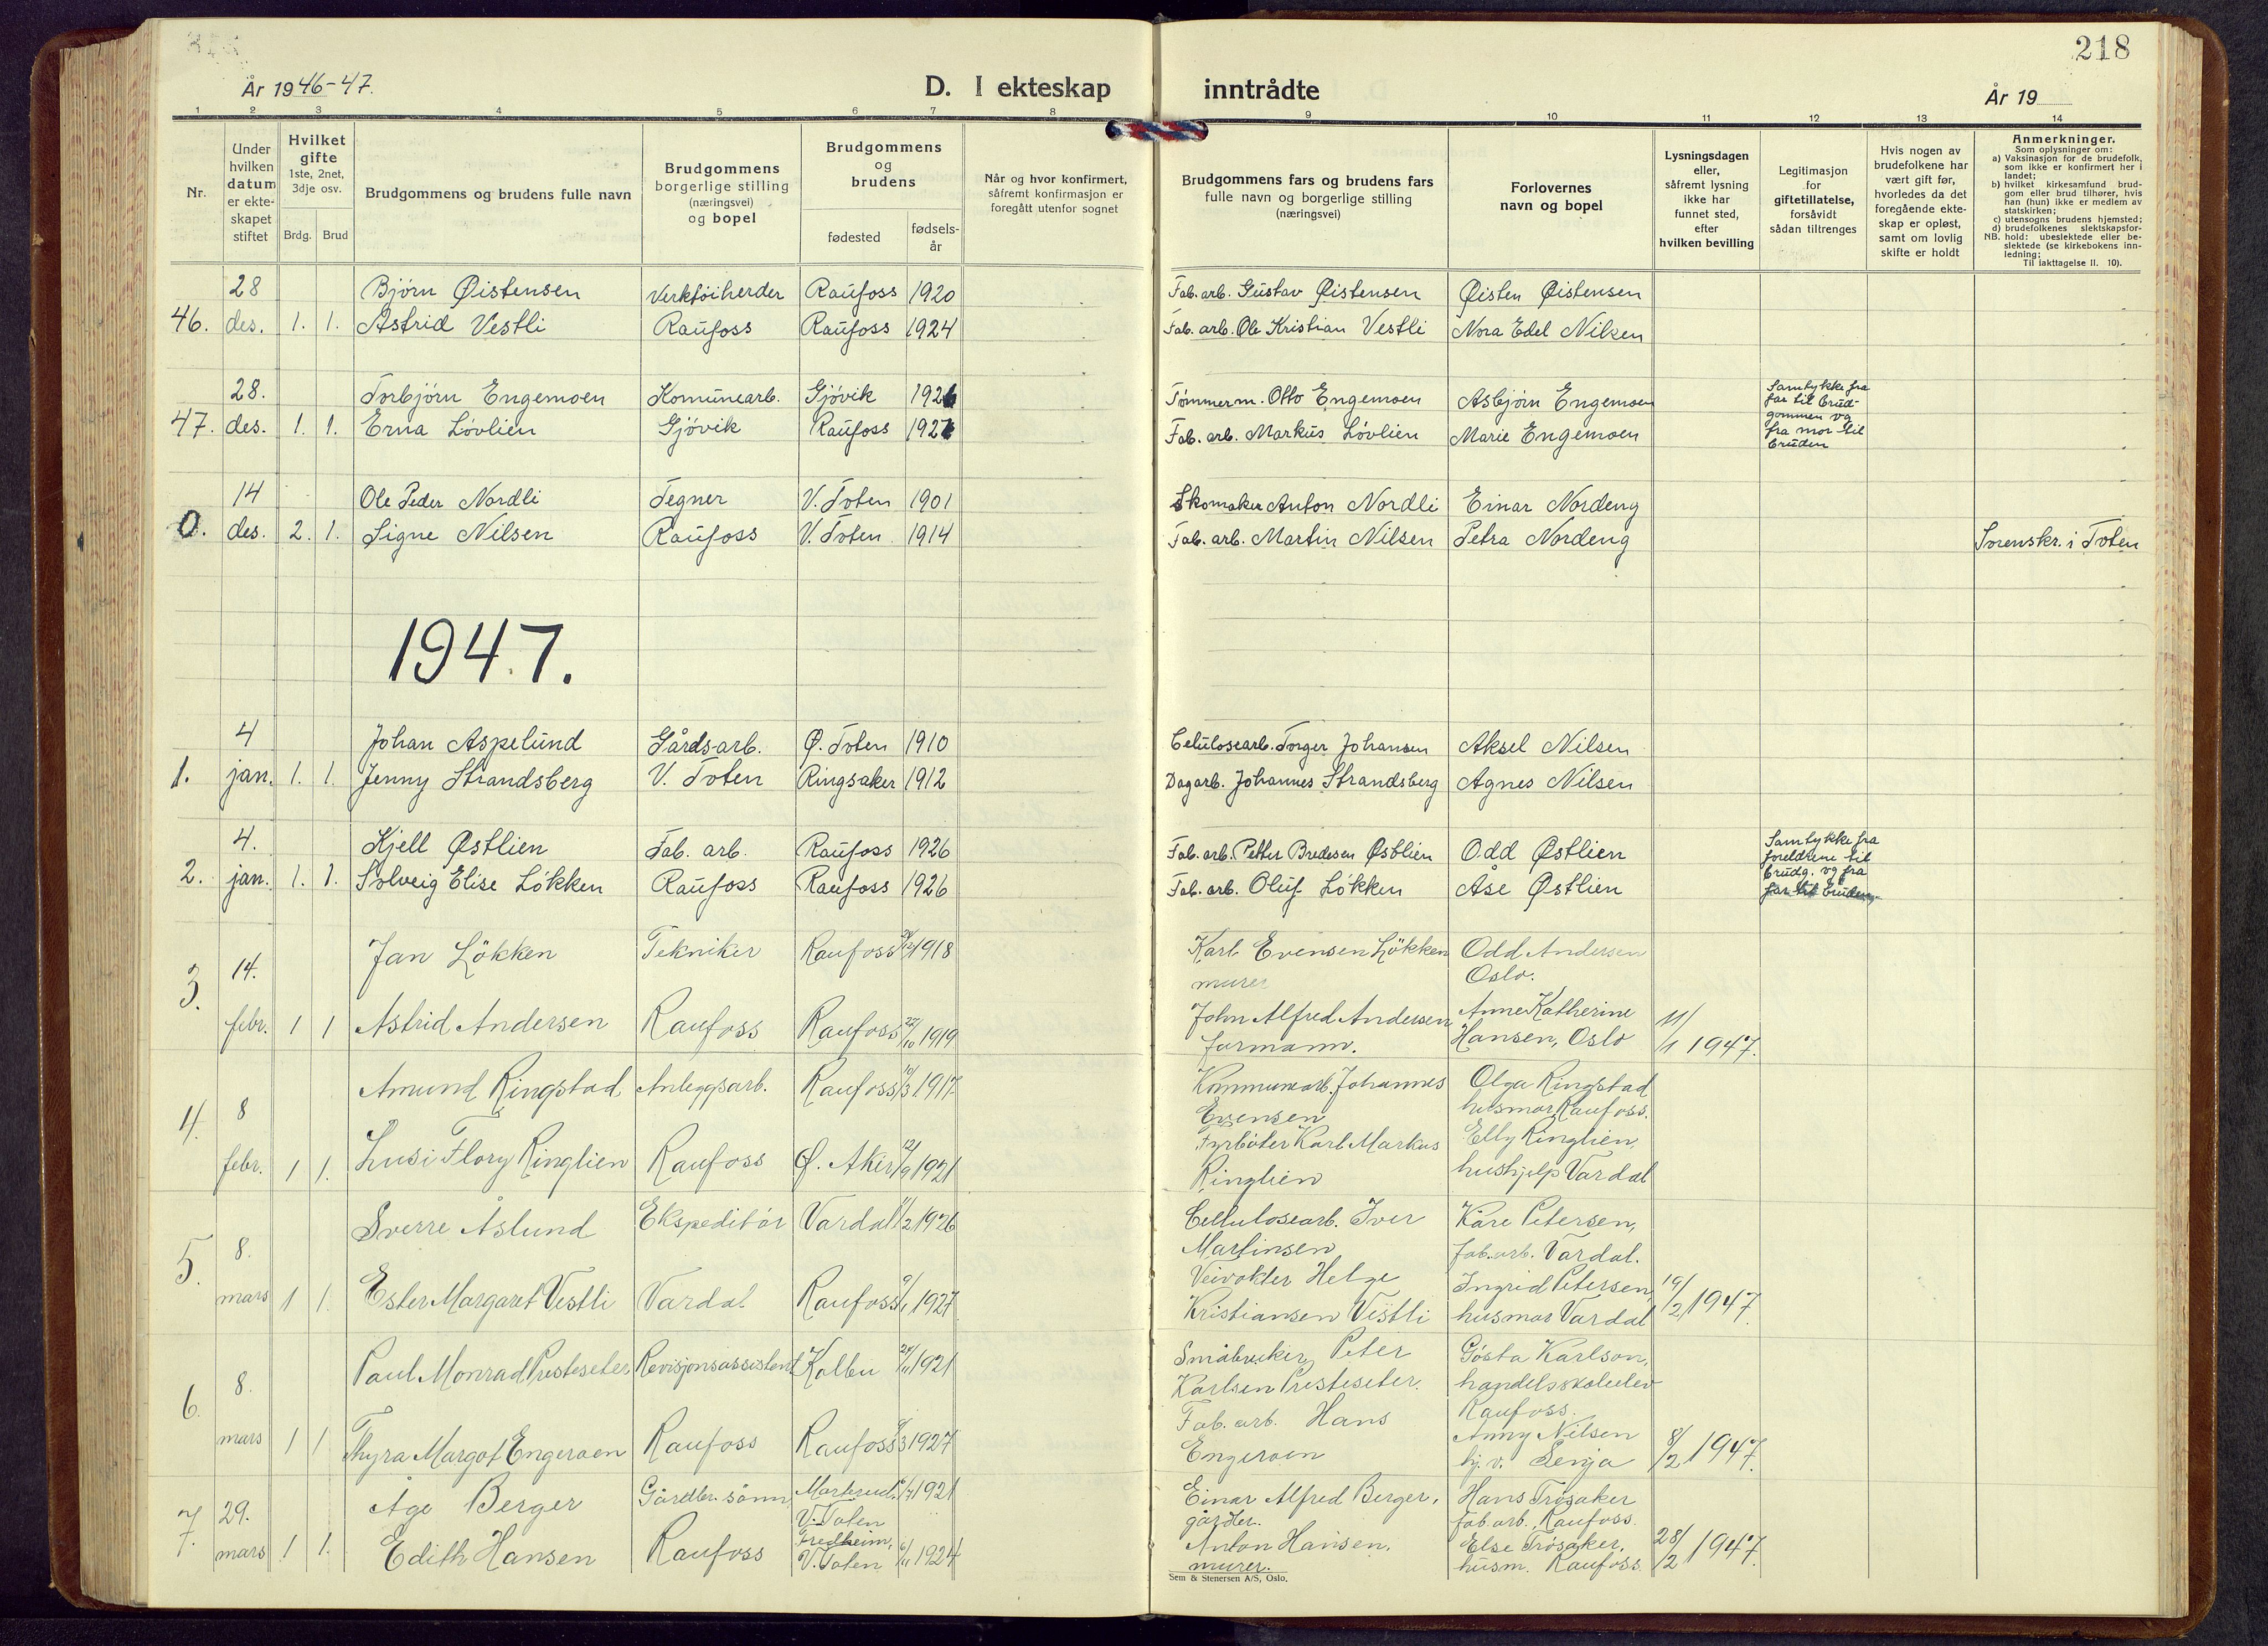 218
År 1946-47.
D. I ekteskap inntrådte
År 19
1 2 3 4 5 6 7 8 9 10 11 12 13 14
Nr.
Under hvilken datum er ekteskapet stiftet
Hvilket gifte 1ste, 2net, 3dje osv.
Brdg. Brud
Brudgommens og brudens fulle navn
Brudgommens borgerlige stilling (næringsvei) og bopel
Brudgommens og brudens
fødested
fødselsår
Når og hvor konfirmert, såfremt konfirmasjon er foregått utenfor sognet
Brudgommens fars og brudens fars fulle navn og borgerlige stilling (næringsvei)
Forlovernes navn og bopel
Lysningsdagen eller, såfremt lysning ikke har funnet sted, efter hvilken bevilling
Legitimasjon for giftetillatelse, forsåvidt sådan tiltrenges
Hvis nogen av brudefolkene har vært gift før, hvorledes da det foregående ekteskap er opløst, samt om lovlig skifte er holdt
Anmerkninger.
Som oplysninger om:
a) Vaksinasjon for de brudefolk, som ikke er konfirmert her i landet;
b) hvilket kirkesamfund brudgom eller brud tilhører, hvis han (hun) ikke er medlem av statskirken;
c) utensogns brudens hjemsted;
d) brudefolkenes slektskapsforhold: ubeslektede eller beslektede (se kirkebokens innledning;
NB. Til iakttagelse II. 10).
28 Bjørn Øistensen Verktöiherder Raufoss 1920 Fab. arb. Gustav Øistensen Øisten Øistensen
46. des. 1. 1. Astrid Vestli Raufoss Raufoss 1924 Fab. arb. Ole Kristian Vestli Nora Edel Nilsen
28. Torbjörn Engemoen Komunearb. Gjövik 1926 Tømmerm. Otto Engemoen Asbjörn Engemoen
47. des. 1. 1. Erna Lövlien Gjövik Raufoss 192 Fab. arb. Markus Lövlien Marie Engemoen
Samtykke fra
far til brud-
gommen og
fra mor til
bruden
14 Ole Peder Nordli Tegner V. Toten 1901 Skomaker Anton Nordli Einar Nordeng
0. des. 2. 1. Signe Nilsen Raufoss V. Toten 1914 Fab. arb. Martin Nilsen Petra Nordeng Sorenskr. i Toten
1947.
4 Johan Aspelund Gårdsarb. Ø. Toten 1910 Celulosearb. Torger Johansen Aksel Nilsen
1. jan. 1. 1. Jenny Strandsberg V. Toten Ringsaker 1912 Dagarb. Johannes Strandsberg Agnes Nilsen
4. Kjell Østlien Fab. arb. Raufoss 1926 Fab. arb. Petter Bredesen Østlien Odd Østlien
2. jan. 1. 1. Solveig Elise Lökken Raufoss Raufoss 1926 Fab. arb. Oluf Lökken Åse Østlien
Samtykke fra
foreldrene til
brudg. og fra
far til bruden
14. Jan Lökken Tekniker Raufoss 1918 Karl Evensen Lökken Odd Andersen
murer Oslo.
3. febr. 1 1 Astrid Andersen Raufoss Raufoss 27/10 1919 John Alfred Andersen Anne Katherine 11/1 1947.
formann. Hansen, Oslo
8 Amund Ringstad Anleggsarb. Raufoss /3 1917 Kommunearb. Johannes Olga Ringstad
Evensen husmor Raufoss.
4. febr. 1 1. Lusi Flory Ringlien Raufoss Ø. Aker 12/9 1921 Fyrböter Karl Markus Elly Ringlien,
Ringlien hushjelp Vardal
8. Sverre Åslund Ekspeditör Vardal /2 1926 Cellulosearb. Iver Kåre Petersen,
Martinsen fab. arb. Vardal.
5. mars 1 1. Ester Margaret Vestli Vardal Raufoss 9/1 1927 Veivokter Helge Ingrid Petersen, 19/2 1947.
Kristiansen Vestli husmor Vardal
8. Paul Monrad Presteseter Revisjonsassistent Kolbu /11 1921 Småbruker Peter Gösta Karlson,
Karlsen Presteseter. handelsskoleelev
Raufoss.
6. mars 1 1 Thyra Margot Engeroen Raufoss Raufoss /3 1927 Fab. arb. Hans Anny Nilsen 8/2 1947.
Engeroen hj. v. Senja
29. Åge Berger Gårdbr. sönn, V. Toten 1921 Einar Alfred Berger, Hans Trösaker
gårdbr. fab. arb., Raufoss.
7. mars 1 1. Edith Hansen Raufoss Fredheim, V. Toten 6/11 1924 Anton Hansen, Else Trösaker, 28/2 1947.
murer. husm. Raufoss.
Sem & Stenersen A/S, Oslo.